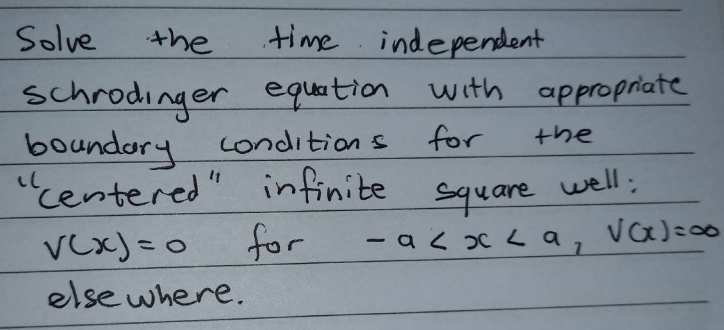 Solve the time independent
schrodinger equation with appropriate
boundary conditions for the
"centered" infinite square well:
V(x)=0 for -a < x < a, V(x)=∞
elsewhere.